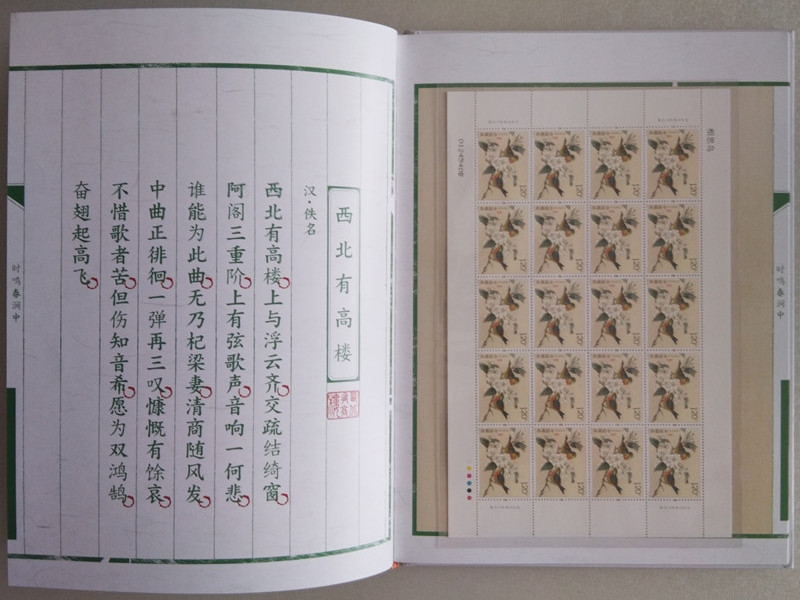 西北有高楼
汉·佚名
西北有高楼上与浮云齐交疏结绮窗
阿阁三重阶上有弦歌声音响一何悲
谁能为此曲无乃杞梁妻清商随风发
中曲正徘徊一弹再三叹慷慨有馀哀
不惜歌者苦但伤知音希愿为双鸿鹄
奋翅起高飞
时鸣春涧中
相思鸟
时鸣春涧中